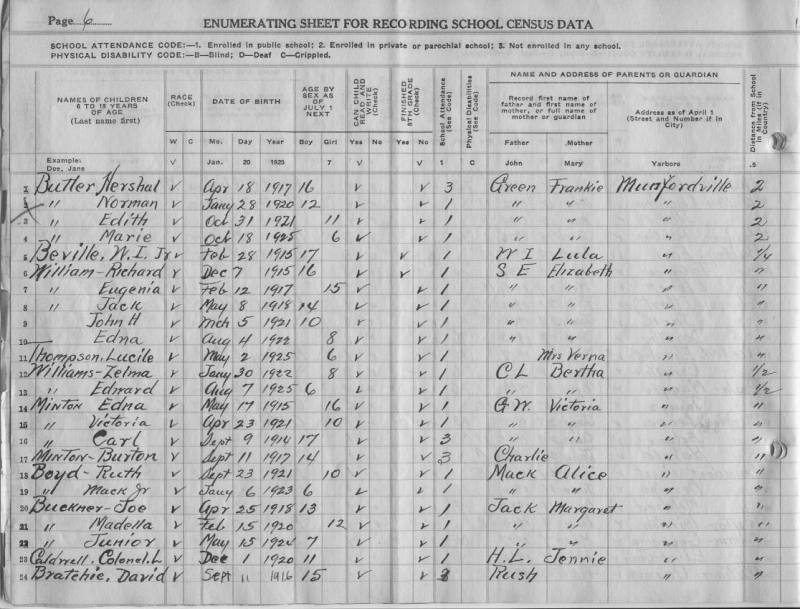 Page 6
ENUMERATING SHEET FOR RECORDING SCHOOL CENSUS DATA
SCHOOL ATTENDANCE CODE:—1. Enrolled in public school; 2. Enrolled in private or parochial school; 3. Not enrolled in any school.
PHYSICAL DISABILITY CODE:—B—Blind; D—Deaf C—Crippled.
NAMES OF CHILDREN 6 TO 18 YEARS OF AGE (Last name first) RACE (Check) DATE OF BIRTH AGE BY SEX AS OF JULY 1 NEXT CAN CHILD READ AND WRITE (Check) FINISHED 8TH GRADE (Check) School Attendance (See Code) Physical Disabilities (See Code) NAME AND ADDRESS OF PARENTS OR GUARDIAN Distance from School in Miles (if in Country)
Record first name of father and first name of mother, or full name of mother or guardian Address as of April 1 (Street and Number if in City)
W C Mo. Day Year Boy Girl Yes No Yes No Father Mother
Example: Doe, Jane V Jan. 20 1925 7 V V 1 C John Mary Yarboro .5
1 Butler Hershal v Apr 18 1917 16 v v 3 Green Frankie Munfordville 2
2 " Norman v Jany 28 1920 12 v v 1 " " " 2
3 " Edith v Oct 31 1921 11 v v 1 " " " 2
4 " Marie v Oct 18 1925 6 v v 1 " " " 2
5 Beville, W.I. Jr v Feb 28 1915 17 v v 1 W I Lula " 1/4
6 William-Richard v Dec 7 1915 16 v v 1 S E Elizabeth " "
7 " Eugenia v Feb 12 1917 15 v v 1 " " " "
8 " Jack v May 8 1918 14 v v 1 " " " "
9 John H v Mch 5 1921 10 v v 1 " " " "
10 Edna v Aug 4 1922 8 v v 1 " " " "
11 Thompson, Lucile v May 2 1925 6 v v 1 Mrs Verna " "
12 Williams-Zelma v Jany 30 1922 8 v v 1 C L Bertha " 1/2
13 " Edward v Aug 7 1925 6 v v 1 " " " 1/2
14 Minton Edna v May 17 1915 16 v v 1 G.W. Victoria " "
15 " Victoria v Apr 23 1921 10 v v 1 " " " "
16 " Carl v Sept 9 1914 17 v v 3 " " " "
17 Minton-Burton v Sept 11 1917 14 v v 3 Charlie " "
18 Boyd-Ruth v Sept 23 1921 10 v v 1 Mack Alice " "
19 " Mack Jr v Jany 6 1923 6 v v 1 " " " "
20 Buckner-Joe v Apr 25 1918 13 v v 1 Jack Margaret " "
21 " Madella v Feb 15 1920 12 v v 1 " " " "
22 " Junior v May 15 1924 7 v v 1 " " " "
23 Caldwell, Colonel. L v Dec 1 1920 11 v v 1 H.L. Jennie " "
24 Bratchie, David v Sept 11 1916 15 v v Rush " "